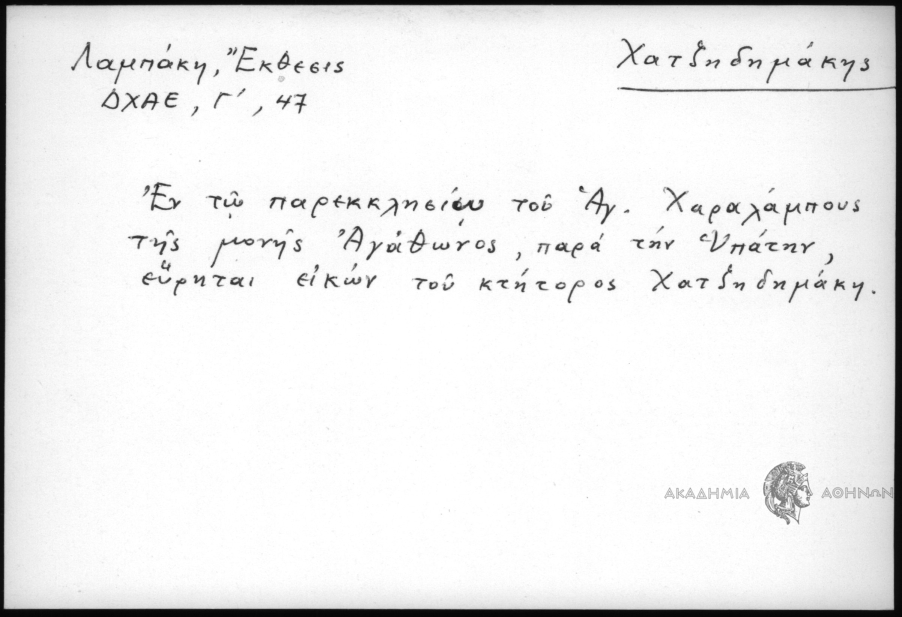 Λαμπάκη, Ἔκθεσις
Χατζηδημάκης
ΔΧΑΕ, Γ', 47
Ἐν τῷ παρεκκλησίῳ τοῦ Ἁγ. Χαραλάμπους
τῆς μονῆς Ἀγάθωνος, παρά τήν Ὑπάτην,
εὕρηται εἰκών τοῦ κτήτορος Χατζηδημάκη.
ΑΚΑΔΗΜΙΑ ΑΘΗΝΩΝ